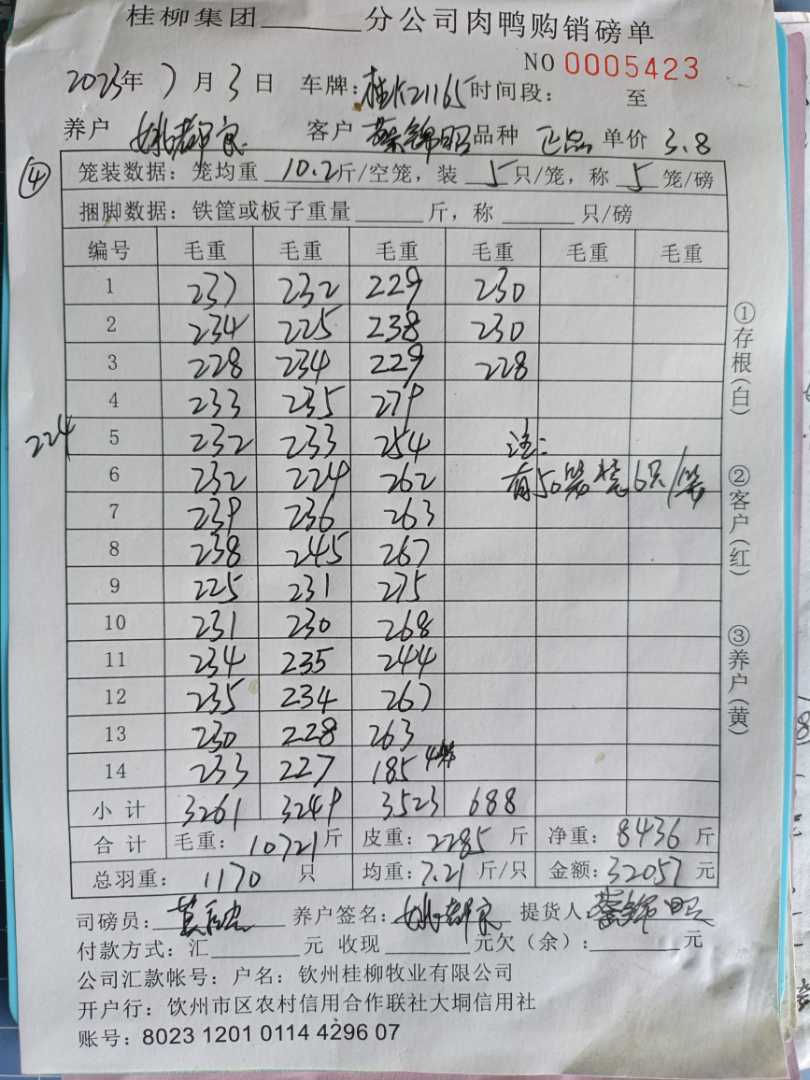 桂柳集团______分公司肉鸭购销磅单
NO 0005423
2023年 7月 3日 车牌:桂K21165 时间段: 至
养户 姚都良 客户 蔡锦昭 品种 正品 单价 3.8
④
笼装数据:笼均重 10.2斤/空笼,装 5只/笼,称 5笼/磅
捆脚数据:铁筐或板子重量______斤,称______只/磅
编号 毛重 毛重 毛重 毛重 毛重 毛重
1 237 232 229 230
2 234 225 238 230
3 228 234 229 228
4 233 235 279
224 5 232 233 254 注:
6 232 224 262 有50笼装6只/笼
7 239 236 263
8 238 245 267
9 225 231 275
10 231 230 268
11 234 235 244
12 235 234 267
13 230 228 263
14 233 227 185 4笼
小计 3261 3249 3523 688
合计 毛重:10721斤 皮重:2285斤 净重:8436斤
总羽重:1170只 均重:7.21斤/只 金额:32057元
①存根(白)
②客户(红)
③养户(黄)
司磅员: 养户签名:姚都良 提货人:蔡锦昭
付款方式:汇______元 收现______元欠(余):______元
公司汇款帐号:户名:钦州桂柳牧业有限公司
开户行:钦州市区农村信用合作联社大垌信用社
账号:8023 1201 0114 4296 07